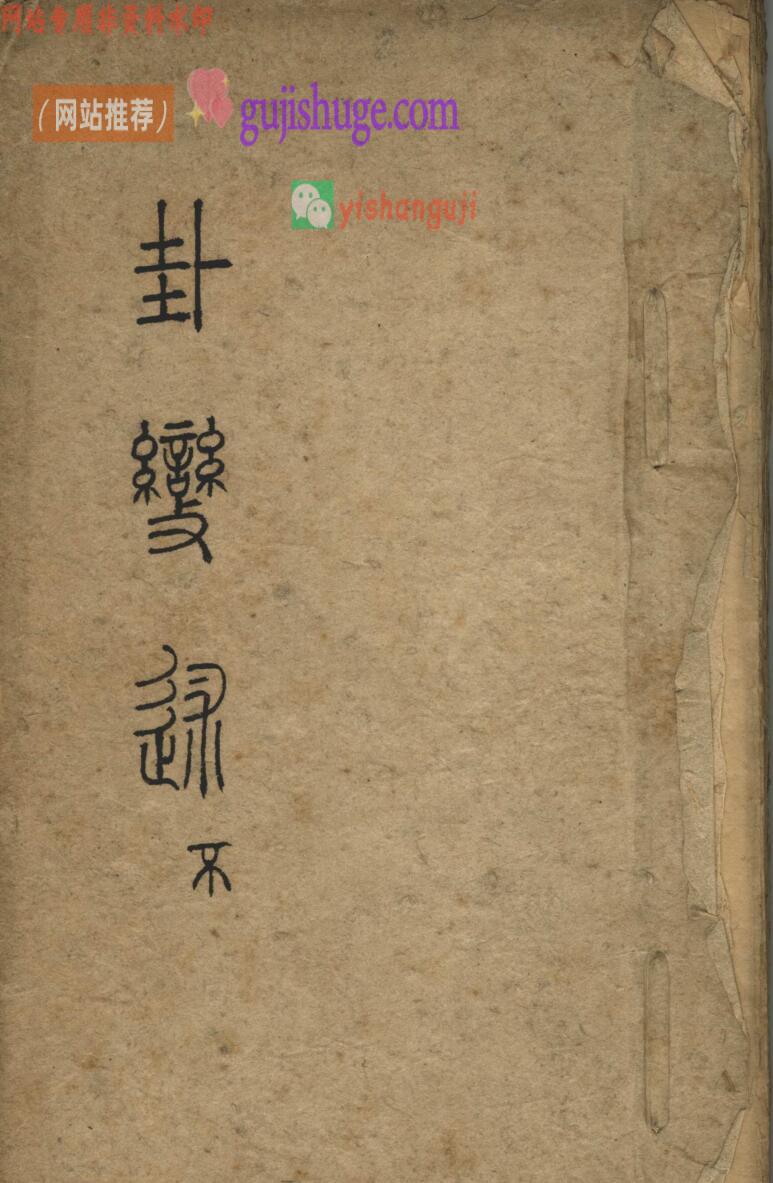 网站专用非资料水印
(网站推荐) gujishuge.com
yishanguji
卦變述
不